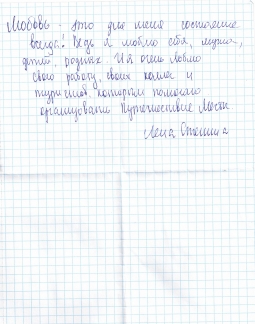 Любовь - это для меня состояние
всегда! Ведь я люблю себя, мужа,
детей, родных. И я очень люблю
свою работу, своих коллег и
туристов, которым помогаю
организовать Путешествие Мечты
Лена